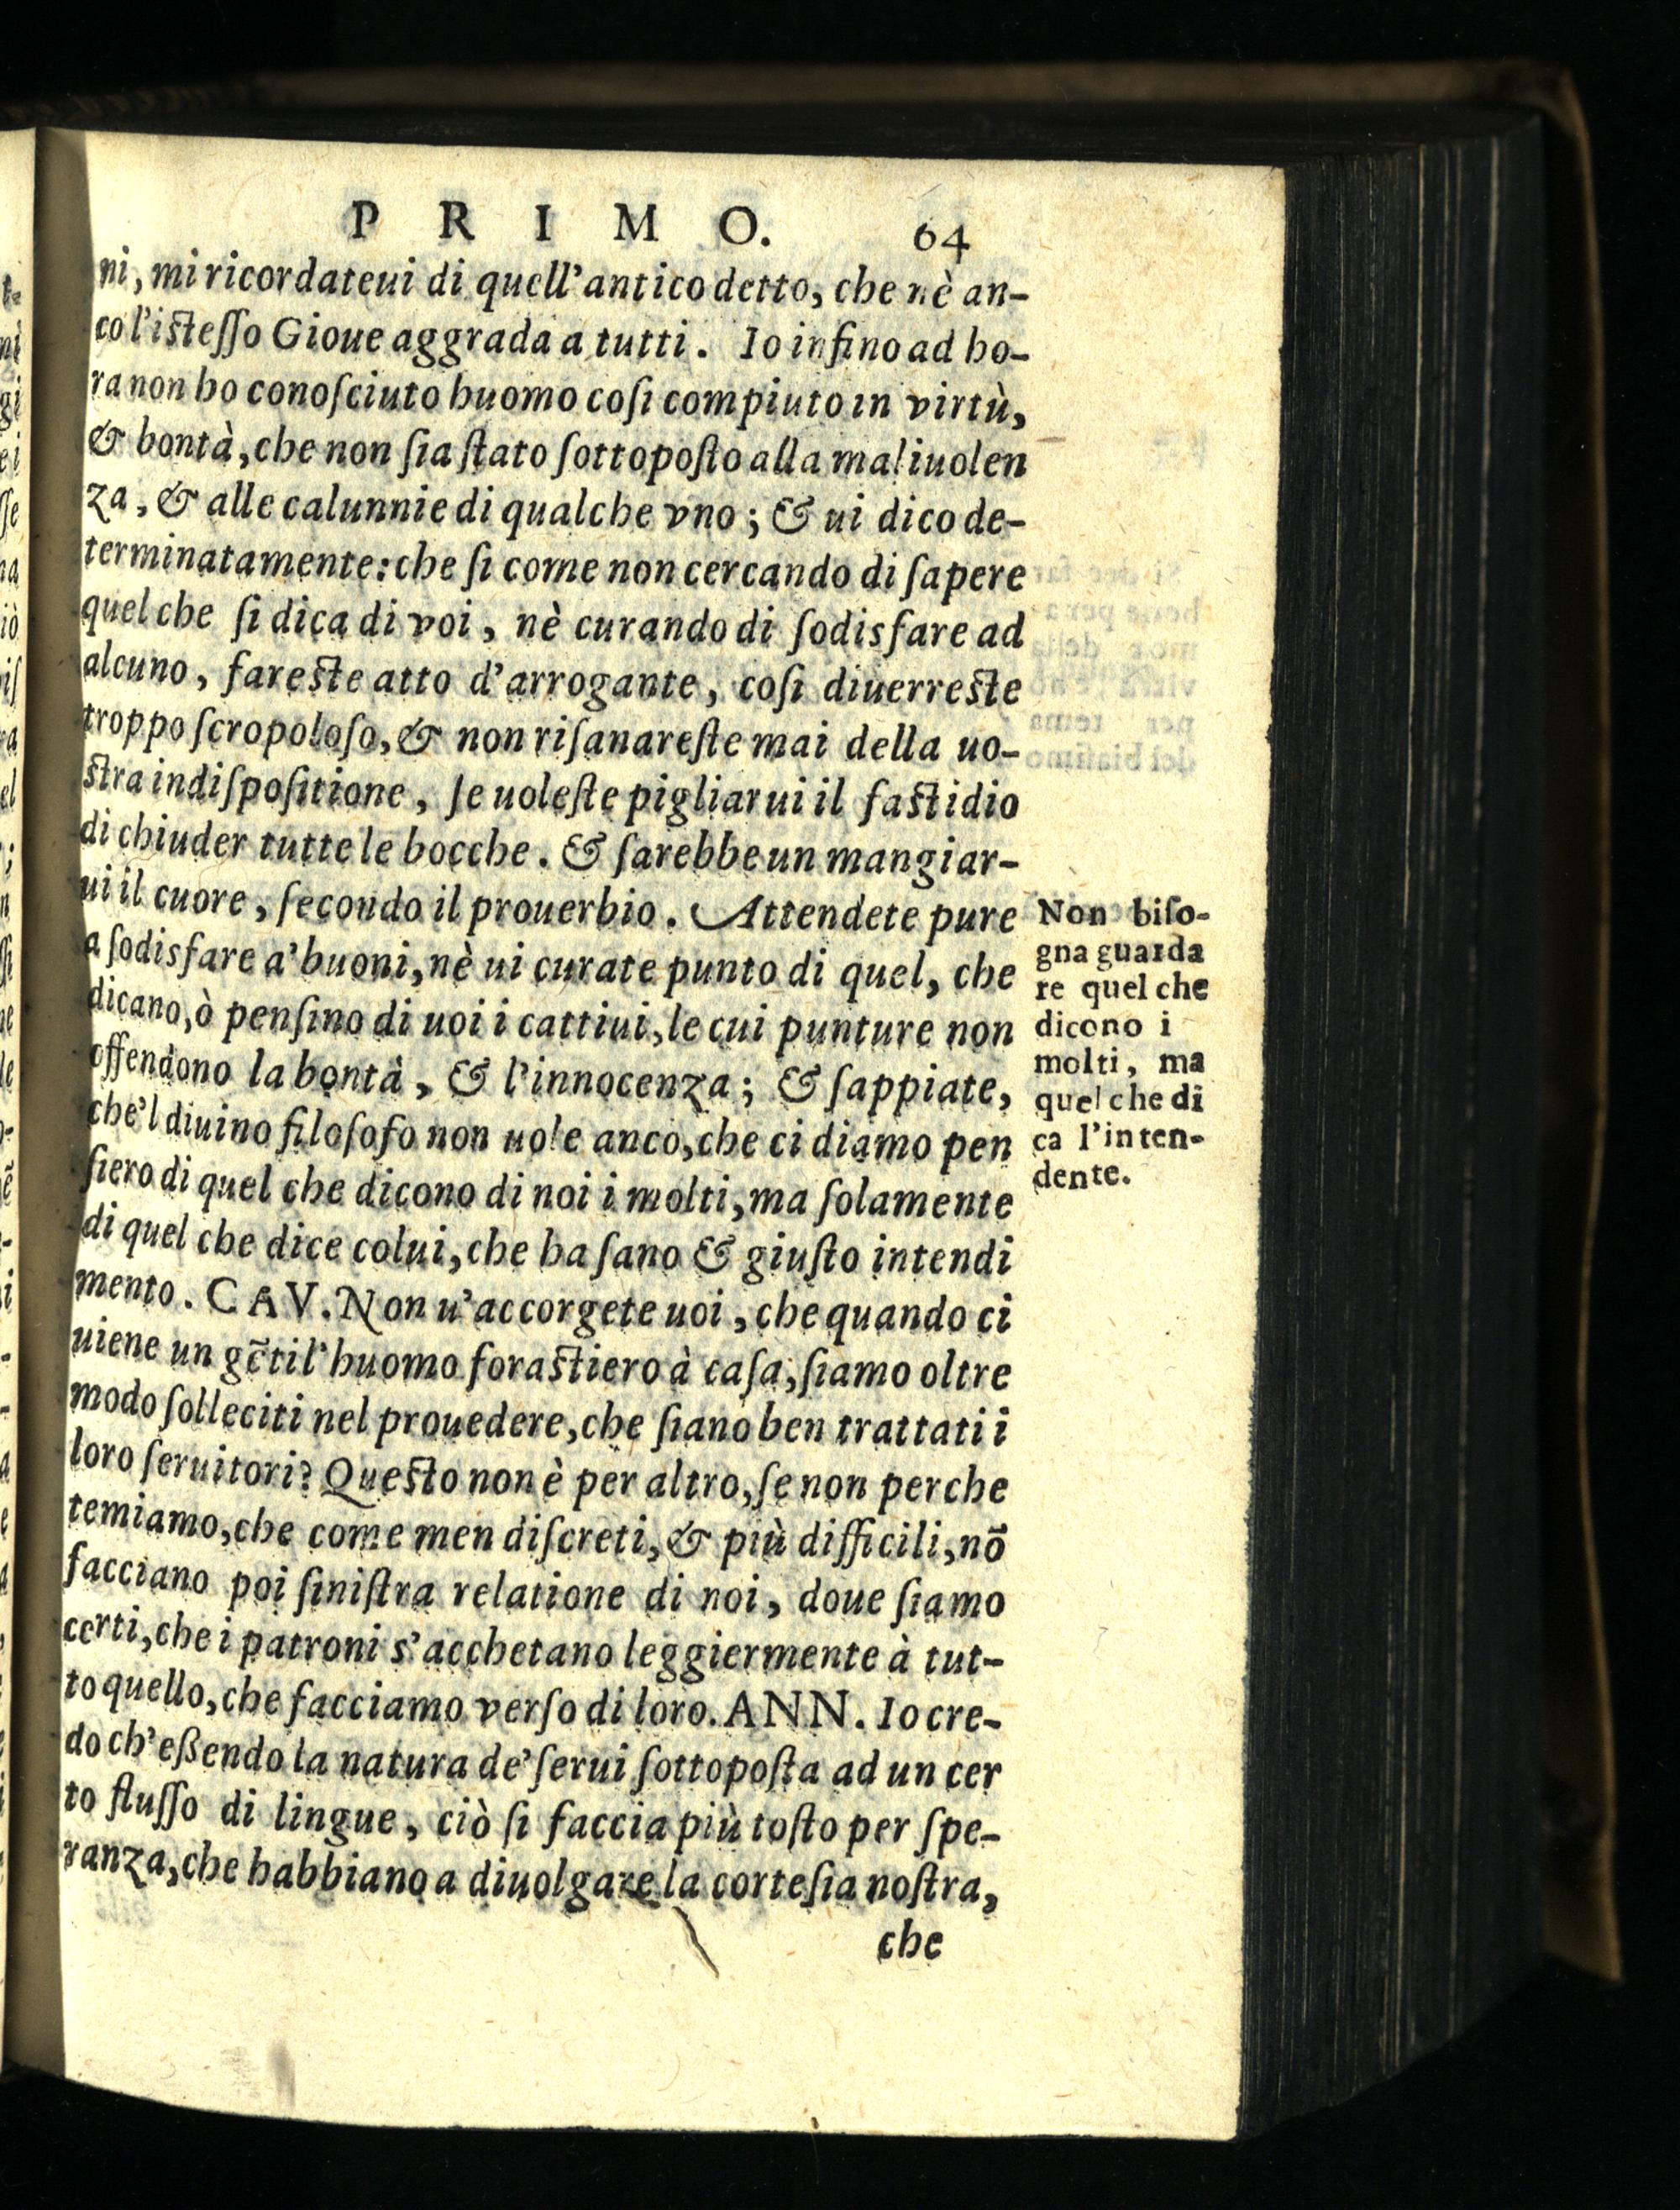 PRIMO. 64
ni, mi ricordateui di quell'antico detto, che nè an-
co l'iſteſſo Gioue aggrada a tutti. Io infino ad ho-
ra non ho conoſciuto huomo coſi compiuto in virtù,
& bontà, che non ſia ſtato ſottopoſto alla maliuolen
za, & alle calunnie di qualche vno; & ui dico de-
terminatamente: che ſi come non cercando di ſapere
quel che ſi dica di voi, nè curando di ſodisfare ad
alcuno, fareſte atto d'arrogante, coſi diuerreſte
troppo ſcropoloſo, & non riſanareſte mai della uo-
ſtra indiſpoſitione, ſe uoleſte pigliarui il faſtidio
di chiuder tutte le bocche. & ſarebbe un mangiar-
ui il cuore, ſecondo il prouerbio. Attendete pure
a ſodisfare a' buoni, nè ui curate punto di quel, che
dicano, ò penſino di uoi i cattiui, le cui punture non
offendono la bontà, & l'innocenza; & ſappiate,
che'l diuino filoſofo non uole anco, che ci diamo pen
ſiero di quel che dicono di noi i molti, ma ſolamente
di quel che dice colui, che ha ſano & giuſto intendi
mento. CAV. Non u'accorgete uoi, che quando ci
uiene un gẽtil'huomo foraſtiero à caſa, ſiamo oltre
modo ſolleciti nel prouedere, che ſiano ben trattati i
loro ſeruitori? Queſto non è per altro, ſe non perche
temiamo, che come men diſcreti, & più difficili, nõ
facciano poi ſiniſtra relatione di noi, doue ſiamo
certi, che i patroni s'acchetano leggiermente à tut-
to quello, che facciamo verſo di loro. ANN. Io cre-
do ch'eßendo la natura de' ſerui ſottopoſta ad un cer
to fluſſo di lingue, ciò ſi faccia più toſto per ſpe-
ranza, che habbiano a diuolgare la corteſia noſtra,
che
Non biſo-
gna guarda
re quel che
dicono i
molti, ma
quel che di
ca l'inten-
dente.